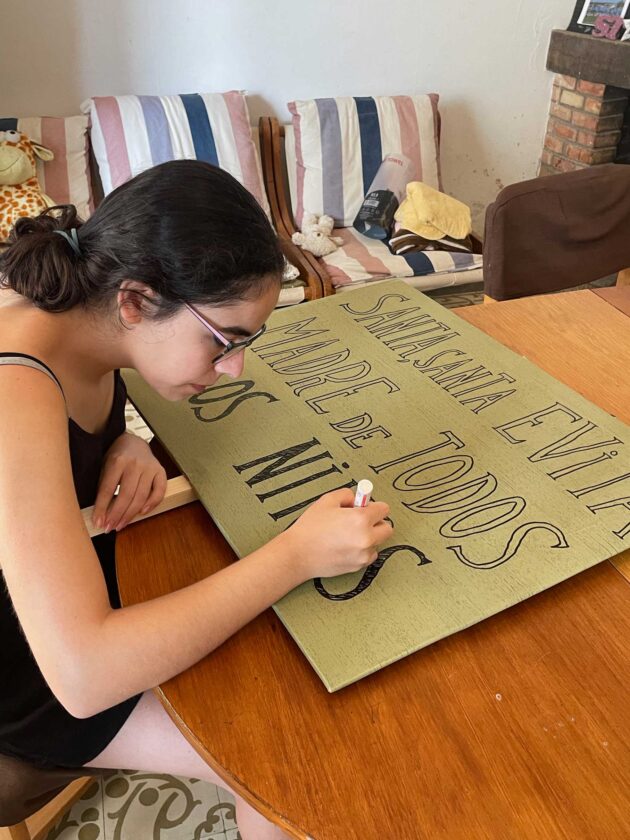 SANTA, SANTA EViTA
MADRE DE TODOS
LOS NiÑOS